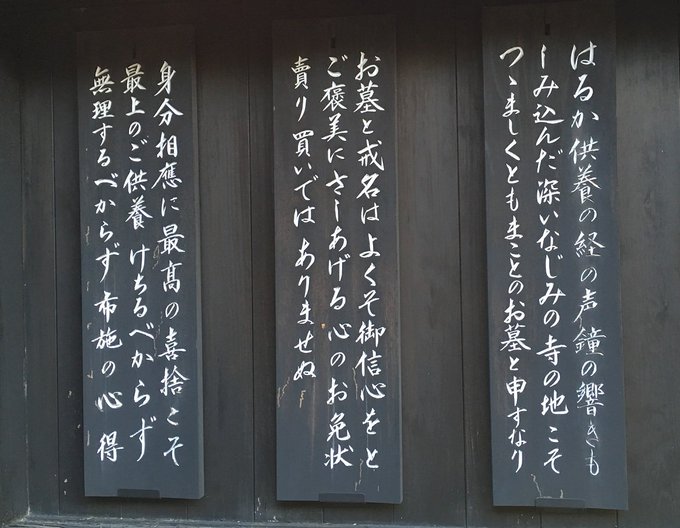 はるか供養の経の声鐘の響きも
しみ込んだ深いなじみの寺の地こそ
つゝましくともまことのお墓と申すなり
お墓と戒名はよくぞ御信心をと
ご褒美にさしあげる心のお免状
賣り買いでは ありませぬ
身分相應に最髙の喜捨こそ
最上のご供養 けちるべからず
無理するべからず 布施の心得